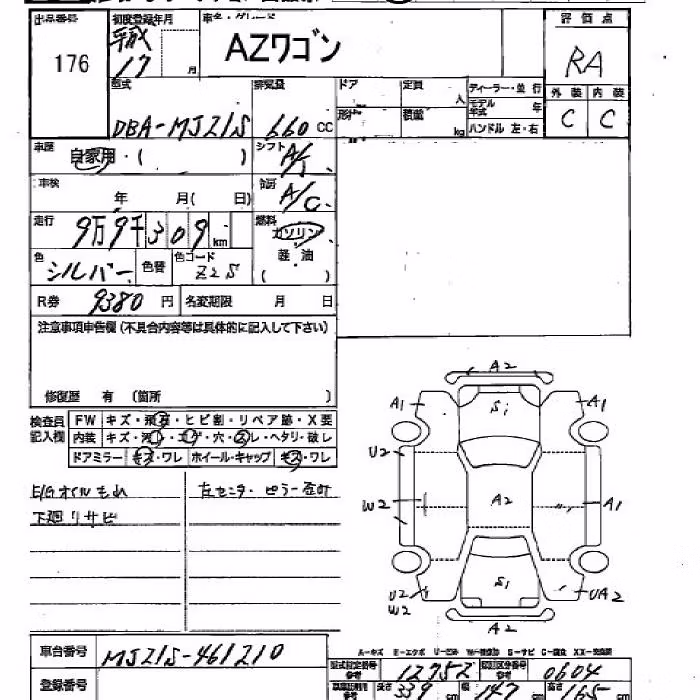 出品番号 初度登録年月 車名・グレード 評価点
176 平成 17 月 AZワゴン RA
型式 排気量 ドア 定員 人 ディーラー・並行 外装 内装
DBA-MJ21S 660 CC 形状 積載 kg モデル年式 年 C C
ハンドル 左・右
車歴 自家用・( ) シフト A/T
車検 年 月( 日) 冷房 A/C
走行 9万9千309 km 燃料 ガソリン
色 シルバー 色替 色コード Z2S 軽油
( )
R券 9380 円 名変期限 月 日
注意事項申告欄(不具合内容等は具体的に記入して下さい)
修復歴 有 (箇所 )
検査員記入欄 FW キズ・飛石・ヒビ割・リペア跡・X要
内装 キズ・汚・コゲ・穴・スレ・ヘタリ・破レ
ドアミラー キズ・ワレ ホイール・キャップ キズ・ワレ
E/Gオイルもれ 左センターピラー
下廻リサビ
A2
A1 S1 A1
U2
W2 A2 A1
U2 W2 S1 UA2
A2
A-キズ E-エクボ U-凹み S-サビ
車台番号 MJ21S-461210
型式指定番号 12752 類別区分番号 0604
登録番号 長さ 339 cm 幅 147 cm 高さ 165 cm